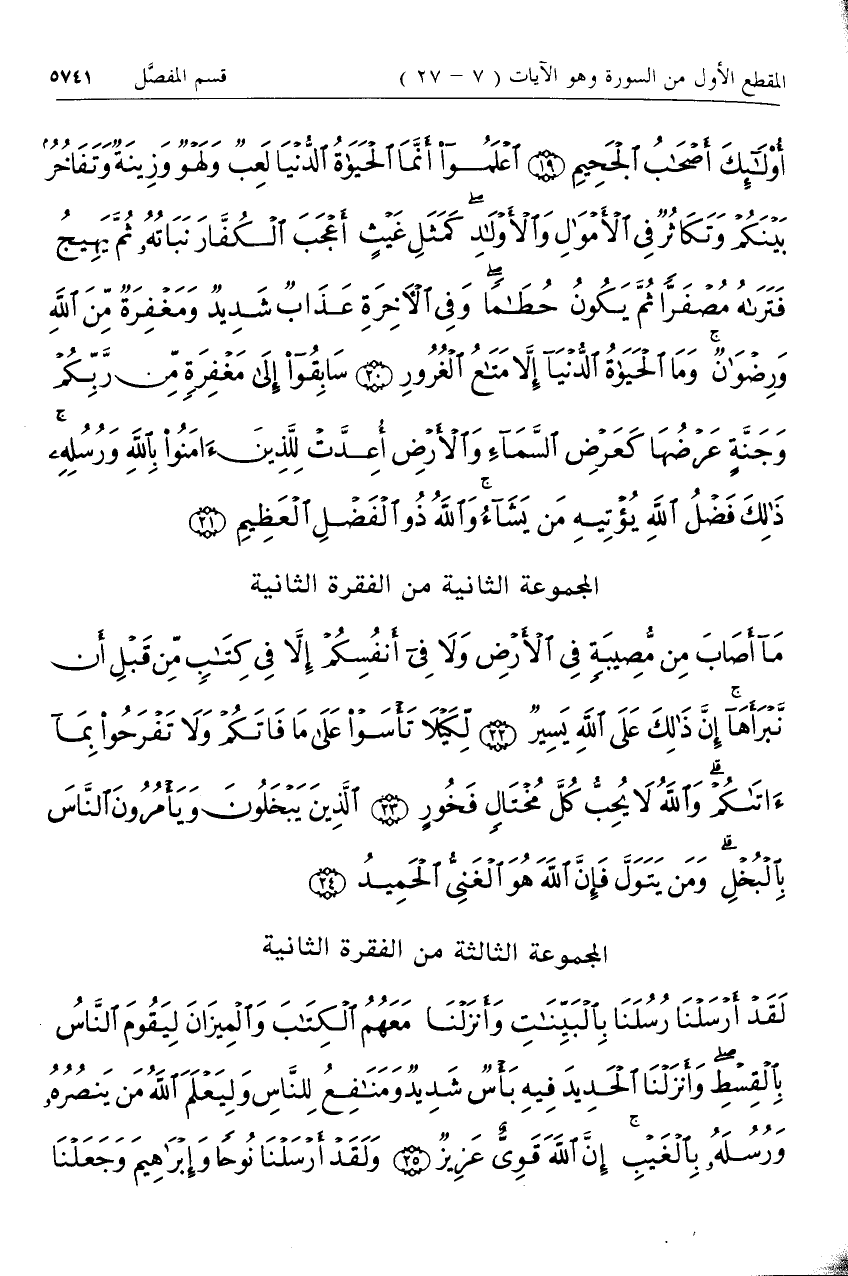 المقطع الأول من السورة وهو الآيات ( ٧ - ٢٧ ) قسم المفصَّل ٥٧٤١
أُوْلَٰٓئِكَ أَصْحَٰبُ ٱلْجَحِيمِ ۝١٩ ٱعْلَمُوٓا۟ أَنَّمَا ٱلْحَيَوٰةُ ٱلدُّنْيَا لَعِبٌ وَلَهْوٌ وَزِينَةٌ وَتَفَاخُرٌۢ
بَيْنَكُمْ وَتَكَاثُرٌ فِى ٱلْأَمْوَٰلِ وَٱلْأَوْلَٰدِ ۖ كَمَثَلِ غَيْثٍ أَعْجَبَ ٱلْكُفَّارَ نَبَاتُهُۥ ثُمَّ يَهِيجُ
فَتَرَىٰهُ مُصْفَرًّا ثُمَّ يَكُونُ حُطَٰمًا ۖ وَفِى ٱلْءَاخِرَةِ عَذَابٌ شَدِيدٌ وَمَغْفِرَةٌ مِّنَ ٱللَّهِ
وَرِضْوَٰنٌ ۚ وَمَا ٱلْحَيَوٰةُ ٱلدُّنْيَآ إِلَّا مَتَٰعُ ٱلْغُرُورِ ۝٢٠ سَابِقُوٓا۟ إِلَىٰ مَغْفِرَةٍ مِّن رَّبِّكُمْ
وَجَنَّةٍ عَرْضُهَا كَعَرْضِ ٱلسَّمَآءِ وَٱلْأَرْضِ أُعِدَّتْ لِلَّذِينَ ءَامَنُوا۟ بِٱللَّهِ وَرُسُلِهِۦ ۚ
ذَٰلِكَ فَضْلُ ٱللَّهِ يُؤْتِيهِ مَن يَشَآءُ ۚ وَٱللَّهُ ذُو ٱلْفَضْلِ ٱلْعَظِيمِ ۝٢١
المجموعة الثانية من الفقرة الثانية
مَآ أَصَابَ مِن مُّصِيبَةٍ فِى ٱلْأَرْضِ وَلَا فِىٓ أَنفُسِكُمْ إِلَّا فِى كِتَٰبٍ مِّن قَبْلِ أَن
نَّبْرَأَهَآ ۚ إِنَّ ذَٰلِكَ عَلَى ٱللَّهِ يَسِيرٌ ۝٢٢ لِّكَيْلَا تَأْسَوْا۟ عَلَىٰ مَا فَاتَكُمْ وَلَا تَفْرَحُوا۟ بِمَآ
ءَاتَىٰكُمْ ۗ وَٱللَّهُ لَا يُحِبُّ كُلَّ مُخْتَالٍ فَخُورٍ ۝٢٣ ٱلَّذِينَ يَبْخَلُونَ وَيَأْمُرُونَ ٱلنَّاسَ
بِٱلْبُخْلِ ۗ وَمَن يَتَوَلَّ فَإِنَّ ٱللَّهَ هُوَ ٱلْغَنِىُّ ٱلْحَمِيدُ ۝٢٤
المجموعة الثالثة من الفقرة الثانية
لَقَدْ أَرْسَلْنَا رُسُلَنَا بِٱلْبَيِّنَٰتِ وَأَنزَلْنَا مَعَهُمُ ٱلْكِتَٰبَ وَٱلْمِيزَانَ لِيَقُومَ ٱلنَّاسُ
بِٱلْقِسْطِ ۖ وَأَنزَلْنَا ٱلْحَدِيدَ فِيهِ بَأْسٌ شَدِيدٌ وَمَنَٰفِعُ لِلنَّاسِ وَلِيَعْلَمَ ٱللَّهُ مَن يَنصُرُهُۥ
وَرُسُلَهُۥ بِٱلْغَيْبِ ۚ إِنَّ ٱللَّهَ قَوِىٌّ عَزِيزٌ ۝٢٥ وَلَقَدْ أَرْسَلْنَا نُوحًا وَإِبْرَٰهِيمَ وَجَعَلْنَا